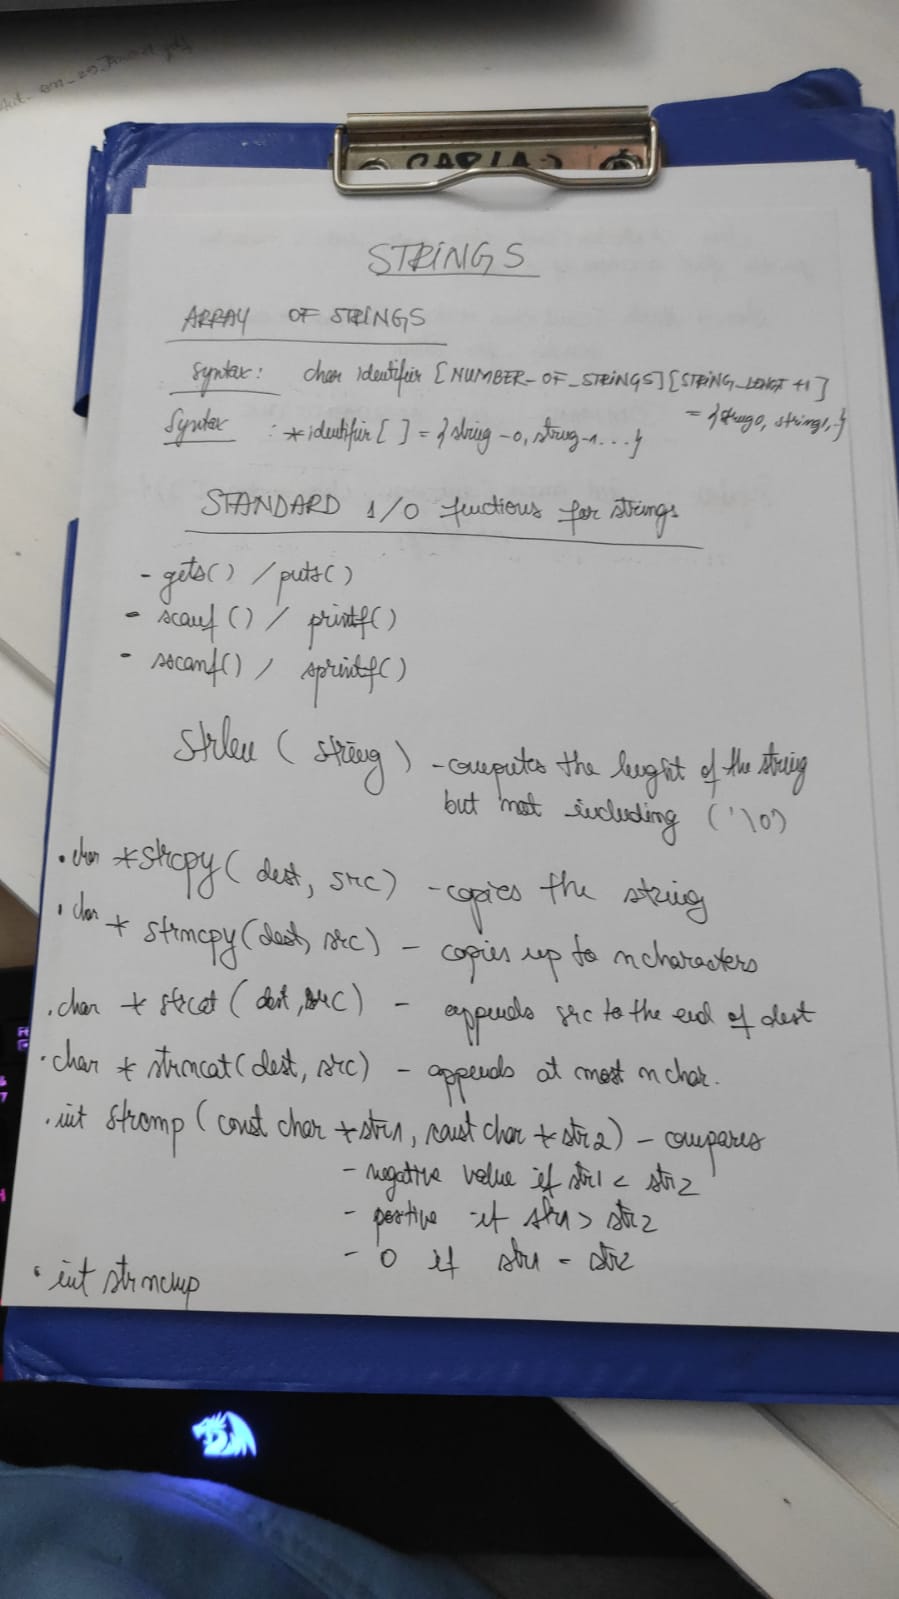 STRINGS
ARRAY OF STRINGS
Syntax: char identifier [NUMBER-OF_STRINGS][STRING_LENGT +1]
= {string0, string1,..}
Syntax : *identifier[ ] = {string-0, string-1...}
STANDARD I/O functions for strings
- gets() / puts()
- scanf() / printf()
- sscanf() / sprintf()
strlen ( string ) - computes the lenght of the string
but not including ('\0')
. char *strcpy( dest, src) - copies the string
. char * strncpy(dest, src) - copies up to n characters
. char * strcat ( dest, src) - appends src to the end of dest
. char * strncat(dest, src) - appends at most n char.
. int strcmp (const char *str1, const char *str2) - compares
- negative value if str1 < str2
- positive if str1 > str2
- 0 if str1 = str2
. int strncmp